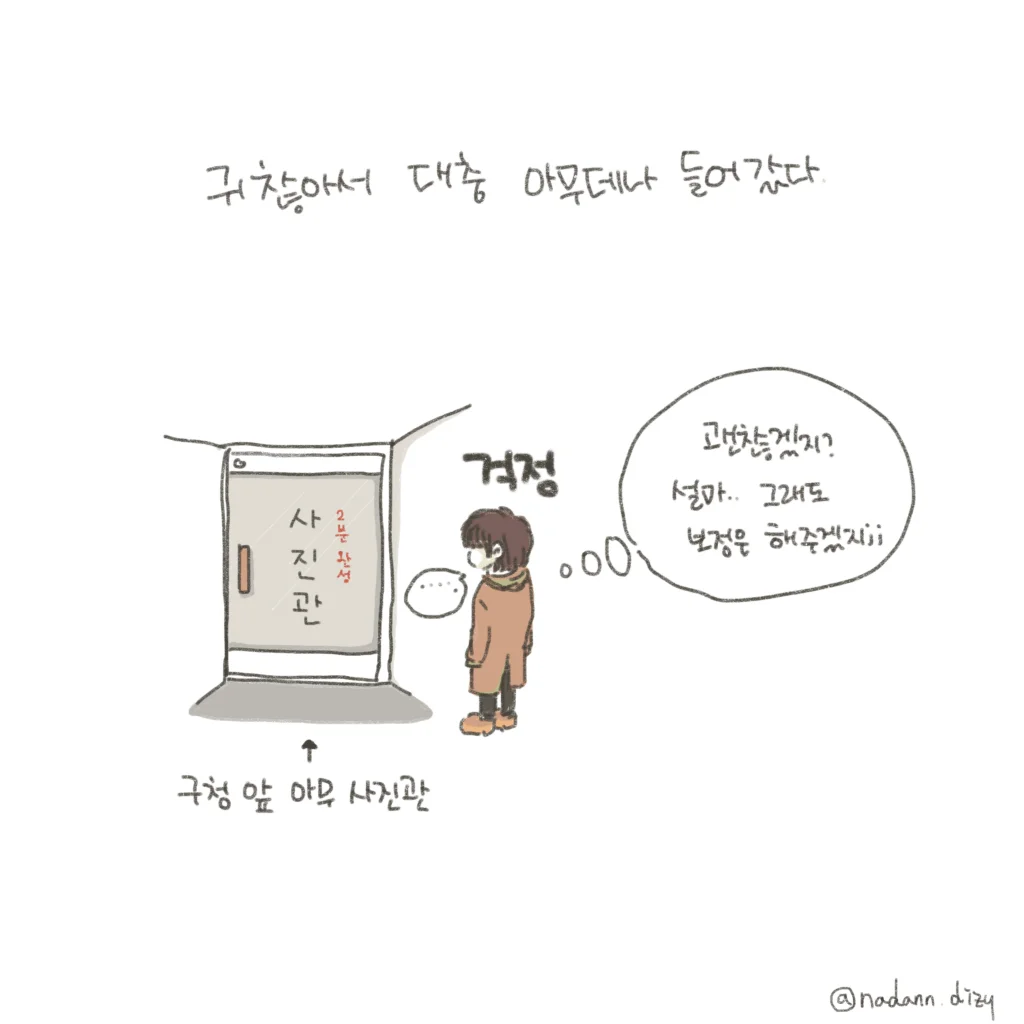 귀찮아서 대충 아무데나 들어갔다.
걱정
괜찮겠지?
설마.. 그래도
보정은 해주겠지;;
.....
사진관
2분 완성
↑
구청 앞 아무 사진관
@nadann.dizy